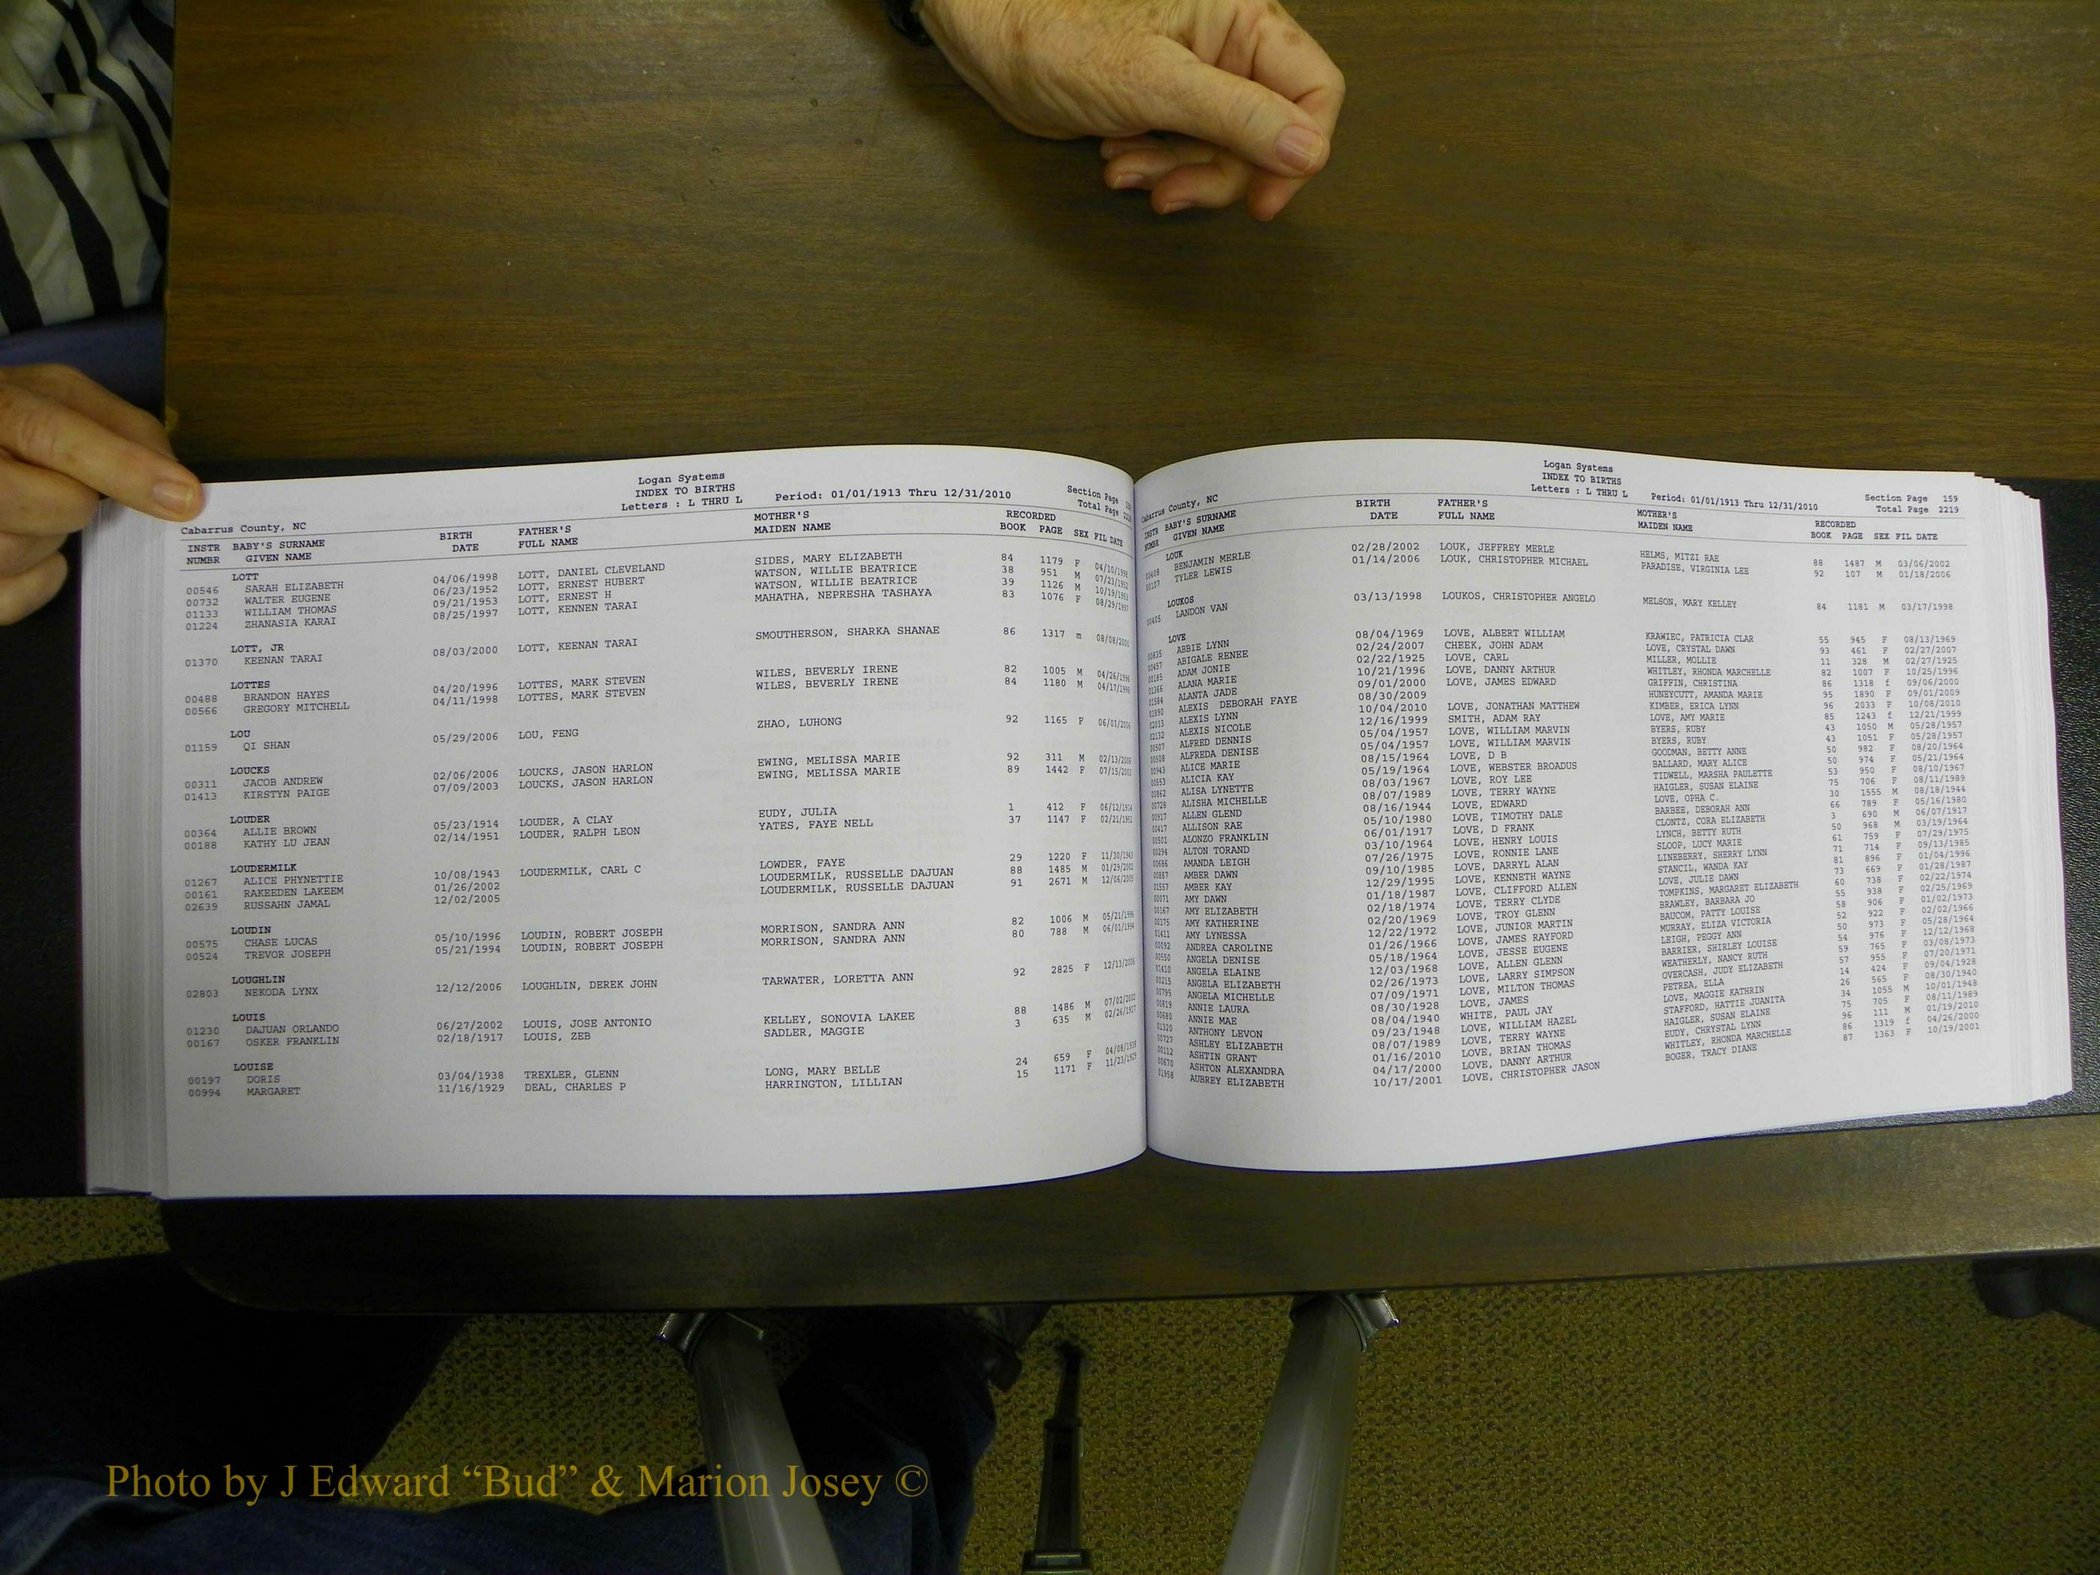 Logan Systems
INDEX TO BIRTHS
Letters : L THRU L Period: 01/01/1913 Thru 12/31/2010
Section Page
Total Page
Cabarrus County, NC
INSTR BABY'S SURNAME BIRTH FATHER'S MOTHER'S RECORDED
NUMBR GIVEN NAME DATE FULL NAME MAIDEN NAME BOOK PAGE SEX FIL DATE
LOTT
00546 SARAH ELIZABETH 04/06/1998 LOTT, DANIEL CLEVELAND SIDES, MARY ELIZABETH 84 1179 F 04/10/1998
00732 WALTER EUGENE 06/23/1952 LOTT, ERNEST HUBERT WATSON, WILLIE BEATRICE 38 951 M 07/23/1952
01133 WILLIAM THOMAS 09/21/1953 LOTT, ERNEST H WATSON, WILLIE BEATRICE 39 1126 M 10/19/1953
01224 ZHANASIA KARAI 08/25/1997 LOTT, KENNEN TARAI MAHATHA, NEPRESHA TASHAYA 83 1076 F 08/29/1997
LOTT, JR
01370 KEENAN TARAI 08/03/2000 LOTT, KEENAN TARAI SMOUTHERSON, SHARKA SHANAE 86 1317 m 08/08/2000
LOTTES
00488 BRANDON HAYES 04/20/1996 LOTTES, MARK STEVEN WILES, BEVERLY IRENE 82 1005 M 04/26/1996
00566 GREGORY MITCHELL 04/11/1998 LOTTES, MARK STEVEN WILES, BEVERLY IRENE 84 1180 M 04/17/1998
LOU
01159 QI SHAN 05/29/2006 LOU, FENG ZHAO, LUHONG 92 1165 F 06/01/2006
LOUCKS
00311 JACOB ANDREW 02/06/2006 LOUCKS, JASON HARLON EWING, MELISSA MARIE 92 311 M 02/13/2006
01413 KIRSTYN PAIGE 07/09/2003 LOUCKS, JASON HARLON EWING, MELISSA MARIE 89 1442 F 07/15/2003
LOUDER
00364 ALLIE BROWN 05/23/1914 LOUDER, A CLAY EUDY, JULIA 1 412 F 06/12/1914
00188 KATHY LU JEAN 02/14/1951 LOUDER, RALPH LEON YATES, FAYE NELL 37 1147 F 02/21/1951
LOUDERMILK
01267 ALICE PHYNETTIE 10/08/1943 LOUDERMILK, CARL C LOWDER, FAYE 29 1220 F 11/10/1943
00161 RAKEEDEN LAKEEM 01/26/2002 LOUDERMILK, RUSSELLE DAJUAN 88 1485 M 01/29/2002
02639 RUSSAHN JAMAL 12/02/2005 LOUDERMILK, RUSSELLE DAJUAN 91 2671 M 12/06/2005
LOUDIN
00575 CHASE LUCAS 05/10/1996 LOUDIN, ROBERT JOSEPH MORRISON, SANDRA ANN 82 1006 M 05/21/1996
00524 TREVOR JOSEPH 05/21/1994 LOUDIN, ROBERT JOSEPH MORRISON, SANDRA ANN 80 788 M 06/01/1994
LOUGHLIN
02803 NEKODA LYNX 12/12/2006 LOUGHLIN, DEREK JOHN TARWATER, LORETTA ANN 92 2825 F 12/13/2006
LOUIS
01230 DAJUAN ORLANDO 06/27/2002 LOUIS, JOSE ANTONIO KELLEY, SONOVIA LAKEE 88 1486 M 07/02/2002
00167 OSKER FRANKLIN 02/18/1917 LOUIS, ZEB SADLER, MAGGIE 3 635 M 02/26/1917
LOUISE
00197 DORIS 03/04/1938 TREXLER, GLENN LONG, MARY BELLE 24 659 F 04/08/1938
00994 MARGARET 11/16/1929 DEAL, CHARLES P HARRINGTON, LILLIAN 15 1171 F 11/23/1929
Logan Systems
INDEX TO BIRTHS
Letters : L THRU L Period: 01/01/1913 Thru 12/31/2010
Section Page 159
Total Page 2219
Cabarrus County, NC
INSTR BABY'S SURNAME BIRTH FATHER'S MOTHER'S RECORDED
NUMBR GIVEN NAME DATE FULL NAME MAIDEN NAME BOOK PAGE SEX FIL DATE
LOUK
00408 BENJAMIN MERLE 02/28/2002 LOUK, JEFFREY MERLE HELMS, MITZI RAE 88 1487 M 03/06/2002
00107 TYLER LEWIS 01/14/2006 LOUK, CHRISTOPHER MICHAEL PARADISE, VIRGINIA LEE 92 107 M 01/18/2006
LOUKOS
00405 LANDON VAN 03/13/1998 LOUKOS, CHRISTOPHER ANGELO MELSON, MARY KELLEY 84 1181 M 03/17/1998
LOVE
00835 ABBIE LYNN 08/04/1969 LOVE, ALBERT WILLIAM KRAWIEC, PATRICIA CLAR 55 945 F 08/13/1969
00457 ABIGALE RENEE 02/24/2007 CHEEK, JOHN ADAM LOVE, CRYSTAL DAWN 93 461 F 02/27/2007
00185 ADAM JONIE 02/22/1925 LOVE, CARL MILLER, MOLLIE 11 328 M 02/27/1925
01366 ALANA MARIE 10/21/1996 LOVE, DANNY ARTHUR WHITLEY, RHONDA MARCHELLE 82 1007 F 10/25/1996
01584 ALANTA JADE 09/01/2000 LOVE, JAMES EDWARD GRIFFIN, CHRISTINA 86 1318 f 09/06/2000
01890 ALEXIS DEBORAH FAYE 08/30/2009 HUNEYCUTT, AMANDA MARIE 95 1890 F 09/01/2009
02033 ALEXIS LYNN 10/04/2010 LOVE, JONATHAN MATTHEW KIMBER, ERICA LYNN 96 2033 F 10/08/2010
02132 ALEXIS NICOLE 12/16/1999 SMITH, ADAM RAY LOVE, AMY MARIE 85 1243 f 12/21/1999
00507 ALFRED DENNIS 05/04/1957 LOVE, WILLIAM MARVIN BYERS, RUBY 43 1050 M 05/28/1957
00508 ALFREDA DENISE 05/04/1957 LOVE, WILLIAM MARVIN BYERS, RUBY 43 1051 F 05/28/1957
00943 ALICE MARIE 08/15/1964 LOVE, D B GOODMAN, BETTY ANNE 50 982 F 08/20/1964
00553 ALICIA KAY 05/19/1964 LOVE, WEBSTER BROADUS BALLARD, MARY ALICE 50 974 F 05/21/1964
00862 ALISA LYNETTE 08/03/1967 LOVE, ROY LEE TIDWELL, MARSHA PAULETTE 53 950 F 08/10/1967
00728 ALISHA MICHELLE 08/07/1989 LOVE, TERRY WAYNE HAIGLER, SUSAN ELAINE 75 706 F 08/11/1989
00917 ALLEN GLEND 08/16/1944 LOVE, EDWARD LOVE, OPHA C. 30 1555 M 08/18/1944
00417 ALLISON RAE 05/10/1980 LOVE, TIMOTHY DALE BARBEE, DEBORAH ANN 66 789 F 05/16/1980
00501 ALONZO FRANKLIN 06/01/1917 LOVE, D FRANK CLONTZ, CORA ELIZABETH 3 690 M 06/07/1917
00294 ALTON TORAND 03/10/1964 LOVE, HENRY LOUIS LYNCH, BETTY RUTH 50 968 M 03/19/1964
00686 AMANDA LEIGH 07/26/1975 LOVE, RONNIE LANE SLOOP, LUCY MARIE 61 759 F 07/29/1975
00887 AMBER DAWN 09/10/1985 LOVE, DARRYL ALAN LINEBERRY, SHERRY LYNN 71 714 F 09/13/1985
01557 AMBER KAY 12/29/1995 LOVE, KENNETH WAYNE STANCIL, WANDA KAY 81 896 F 01/04/1996
00071 AMY DAWN 01/18/1987 LOVE, CLIFFORD ALLEN LOVE, JULIE DAWN 73 669 F 01/28/1987
00167 AMY ELIZABETH 02/18/1974 LOVE, TERRY CLYDE TOMPKINS, MARGARET ELIZABETH 60 738 F 02/22/1974
00175 AMY KATHERINE 02/20/1969 LOVE, TROY GLENN BRAWLEY, BARBARA JO 55 938 F 02/25/1969
01411 AMY LYNESSA 12/22/1972 LOVE, JUNIOR MARTIN BAUCOM, PATTY LOUISE 58 906 F 01/02/1973
00092 ANDREA CAROLINE 01/26/1966 LOVE, JAMES RAYFORD MURRAY, ELIZA VICTORIA 52 922 F 02/02/1966
00550 ANGELA DENISE 05/18/1964 LOVE, JESSE EUGENE LEIGH, PEGGY ANN 50 973 F 05/28/1964
01410 ANGELA ELAINE 12/03/1968 LOVE, ALLEN GLENN BARRIER, SHIRLEY LOUISE 54 976 F 12/12/1968
00215 ANGELA ELIZABETH 02/26/1973 LOVE, LARRY SIMPSON WEATHERLY, NANCY RUTH 59 765 F 03/08/1973
00795 ANGELA MICHELLE 07/09/1971 LOVE, MILTON THOMAS OVERCASH, JUDY ELIZABETH 57 955 F 07/20/1971
00819 ANNIE LAURA 08/30/1928 LOVE, JAMES PETREA, ELLA 14 424 F 09/04/1928
00680 ANNIE MAE 08/04/1940 WHITE, PAUL JAY LOVE, MAGGIE KATHRIN 26 565 F 08/30/1940
01320 ANTHONY LEVON 09/23/1948 LOVE, WILLIAM HAZEL STAFFORD, HATTIE JUANITA 34 1055 M 10/01/1948
00727 ASHLEY ELIZABETH 08/07/1989 LOVE, TERRY WAYNE HAIGLER, SUSAN ELAINE 75 705 F 08/11/1989
00112 ASHTIN GRANT 01/16/2010 LOVE, BRIAN THOMAS EUDY, CHRYSTAL LYNN 96 111 M 01/19/2010
00670 ASHTON ALEXANDRA 04/17/2000 LOVE, DANNY ARTHUR WHITLEY, RHONDA MARCHELLE 86 1319 f 04/26/2000
01958 AUBREY ELIZABETH 10/17/2001 LOVE, CHRISTOPHER JASON BOGER, TRACY DIANE 87 1363 F 10/19/2001
Photo by J Edward “Bud” & Marion Josey ©